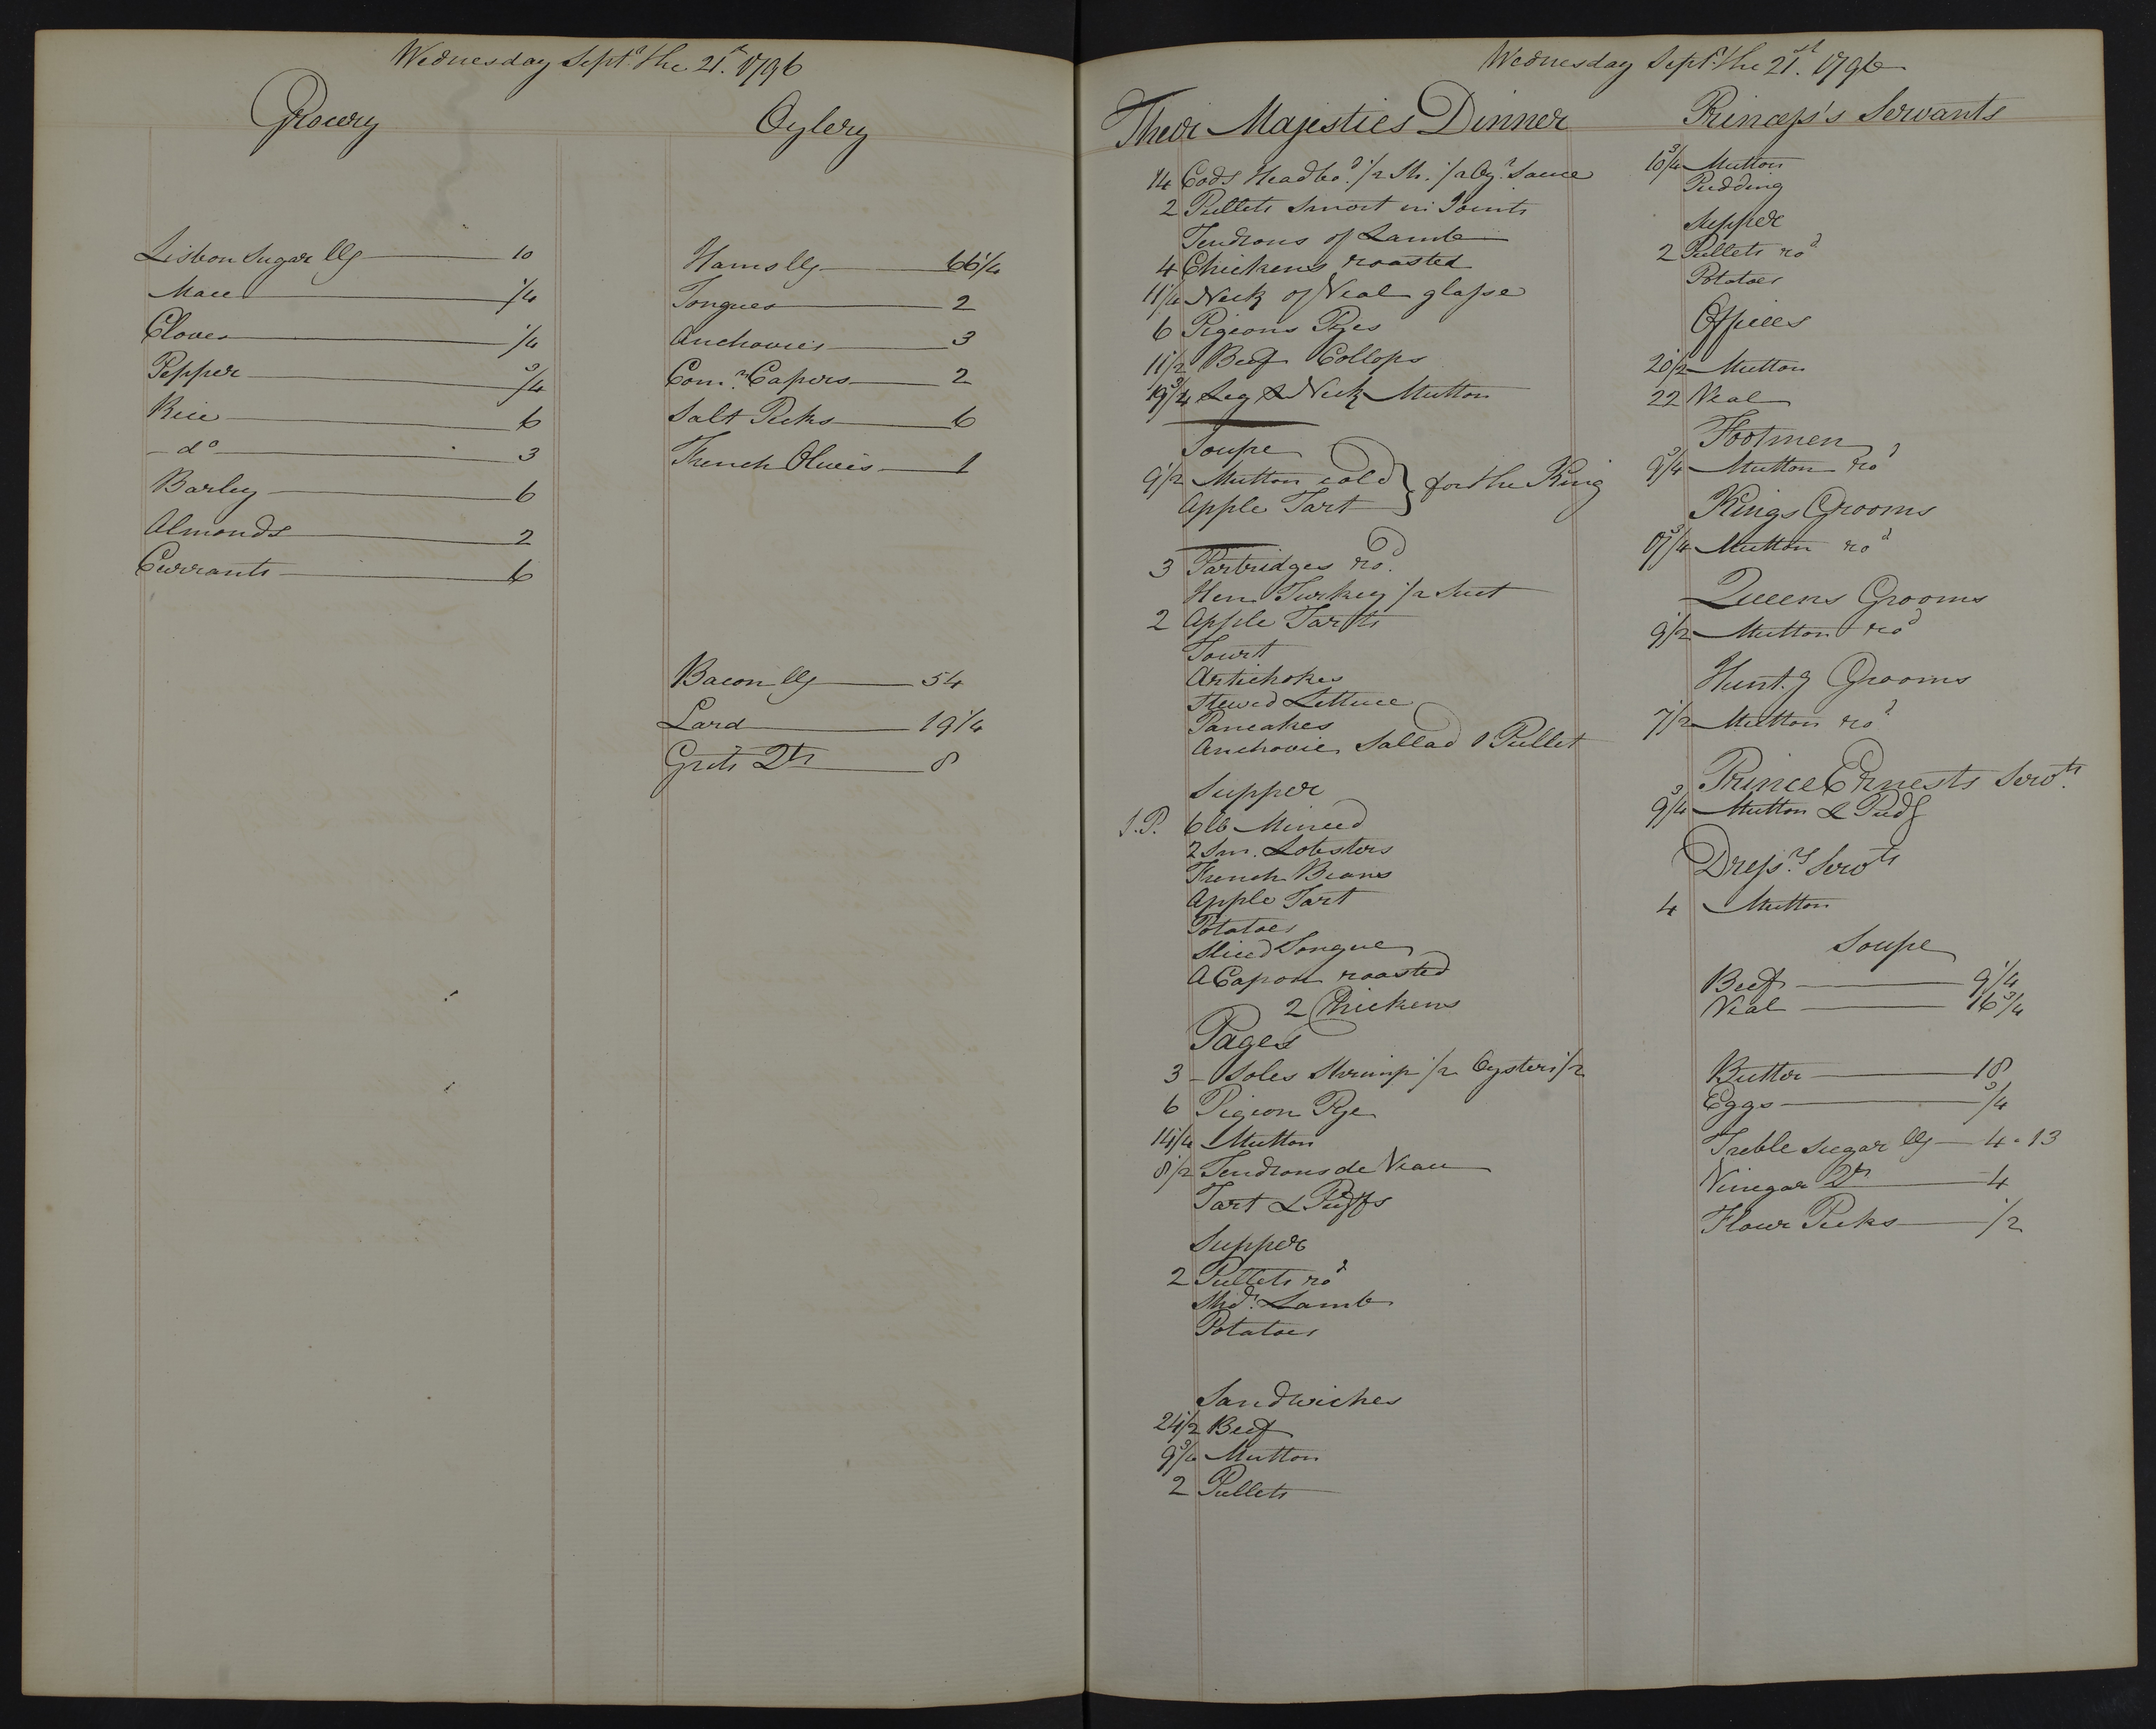 Wednesday Sept.r the 21.st 1796
Grocery
Lisbon Sugar lb 10
Mace 1/4
Cloves 1/4
Pepper 3/4
Rice 6
- do 3
Barley 6
Almonds 2
Currants 6
Oylery
Hams lb 66 1/4
Tongues 2
Anchovies 3
Com.n Capers 2
Salt Pecks 6
French Olives 1
Bacon lb 54
Lard 19 1/4
Grits Qts 8
Wednesday Sept.r the 21.st 1796
Their Majesties Dinner
14 Cods Head bo.d 1/2 Sh. 1/2 Oy.r Sauce
2 Pullets Smort in Joints
Tendrons of Lamb
4 Chickens roasted
11 1/4 Neck of Veal glasse
6 Pigeons Pyes
11 1/2 Beef Collops
19 3/4 Leg & Neck Mutton
Soupe
9 1/2 Mutton cold } for the King
Apple Tart
3 Partridges ro.d
Hen Turkey 1/2 Suet
2 Apple Tarts
Tourt
Artichokes
Stewed Lettuce
Pancakes
Anchovie Sallad 1 Pullet
Supper
1.P. 6 lb Minced
2 Sm. Lobsters
French Beans
Apple Tart
Potatoes
Sliced Tongue
A Capon roasted
2 Chickens
Pages
3 - Soles Shrimp 1/2 Oysters 1/2
6 Pigeon Pye
14 1/4 Mutton
8 1/2 Tendrons de Veau
Tart & Puffs
Supper
2 Pullets ro.d
Shd.r Lamb
Potatoes
Sandwiches
24 1/2 Beef
9 3/4 Mutton
2 Pullets
Princess's Servants
10 3/4 Mutton
Pudding
Supper
2 Pullets ro.d
Potatoes
Offices
20 1/2 Mutton
22 Veal
Footmen
9 3/4 Mutton ro.d
Kings Grooms
Mutton ro.d
Queens Grooms
9 1/2 Mutton ro.d
Hunt.g Grooms
7 1/2 Mutton ro.d
Prince Ernests Serv.ts
9 3/4 Mutton & Pudg
Dress.rs Serv.ts
4 Mutton
Soupe
Beef 9 1/4
Veal 16 3/4
Butter 18
Eggs 3/4
Treble Sugar lb 4 - 13
Vinegar Qts 4
Flour Pecks 1/2